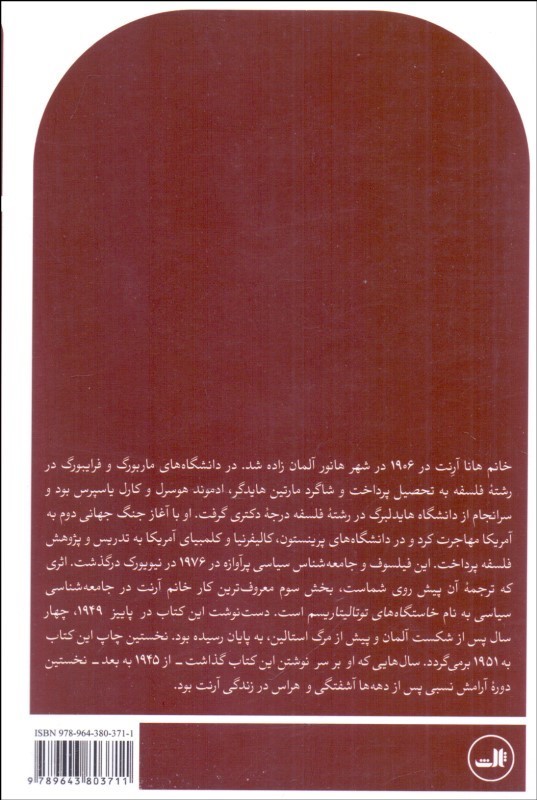 خانم هانا آرنت در ۱۹۰۶ در شهر هانور آلمان زاده شد. در دانشگاه‌های ماربورگ و فرایبورگ در
رشتهٔ فلسفه به تحصیل پرداخت و شاگرد مارتین هایدگر، ادموند هوسرل و کارل یاسپرس بود و
سرانجام از دانشگاه هایدلبرگ در رشتهٔ فلسفه درجهٔ دکتری گرفت. او با آغاز جنگ جهانی دوم به
آمریکا مهاجرت کرد و در دانشگاه‌های پرینستون، کالیفرنیا و کلمبیای آمریکا به تدریس و پژوهش
فلسفه پرداخت. این فیلسوف و جامعه‌شناس سیاسی پرآوازه در ۱۹۷۶ در نیویورک درگذشت. اثری
که ترجمهٔ آن پیش روی شماست، بخش سوم معروف‌ترین کار خانم آرنت در جامعه‌شناسی
سیاسی به نام خاستگاه‌های توتالیتاریسم است. دست‌نوشت این کتاب در پاییز ۱۹۴۹، چهار
سال پس از شکست آلمان و پیش از مرگ استالین، به پایان رسیده بود. نخستین چاپ این کتاب
به ۱۹۵۱ برمی‌گردد. سال‌هایی که او بر سر نوشتن این کتاب گذاشت ــ از ۱۹۴۵ به بعد ــ نخستین
دورهٔ آرامش نسبی پس از دهه‌ها آشفتگی و هراس در زندگی آرنت بود.
ISBN 978-964-380-371-1
9 789643 803711
ثالث